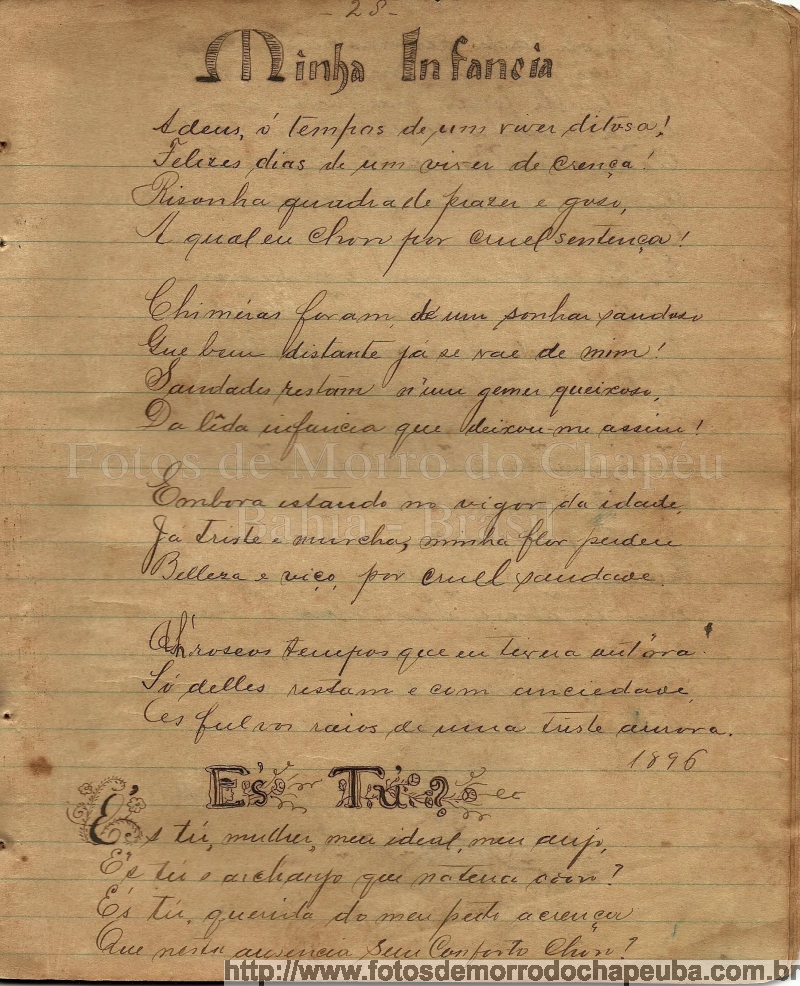 - 28 -
Minha Infancia
Adeus, ó tempos de um viver ditoso!
Felizes dias de um viver de crença!
Risonha quadra de prazer e goso,
A qual eu choro por cruel sentença!
Chiméras foram, de um sonhar saudoso
Que bem distante já se vae de mim!
Saudades restam n'um gemer queixoso,
Da lêda infancia que deixou-me assim!
Fotos de Morro do Chapéu
Embora estando no vigor da idade,
Bahia - Brasil
Já triste e murcha, minha flor perdeu
Belleza e viço, por cruel saudade.
Ah! roseos tempos que eu tivera outr'ora!
Só delles restam e com anciedade,
Os fulvos raios de uma triste aurora.
1896
És Tú?
És tú, mulher, meu ideal, meu anjo,
És tú o archanjo que na terra adoro?
És tú, querida do meu peito a crença
Que nesta ausencia sem conforto choro?
http://www.fotosdemorrodochapeuba.com.br